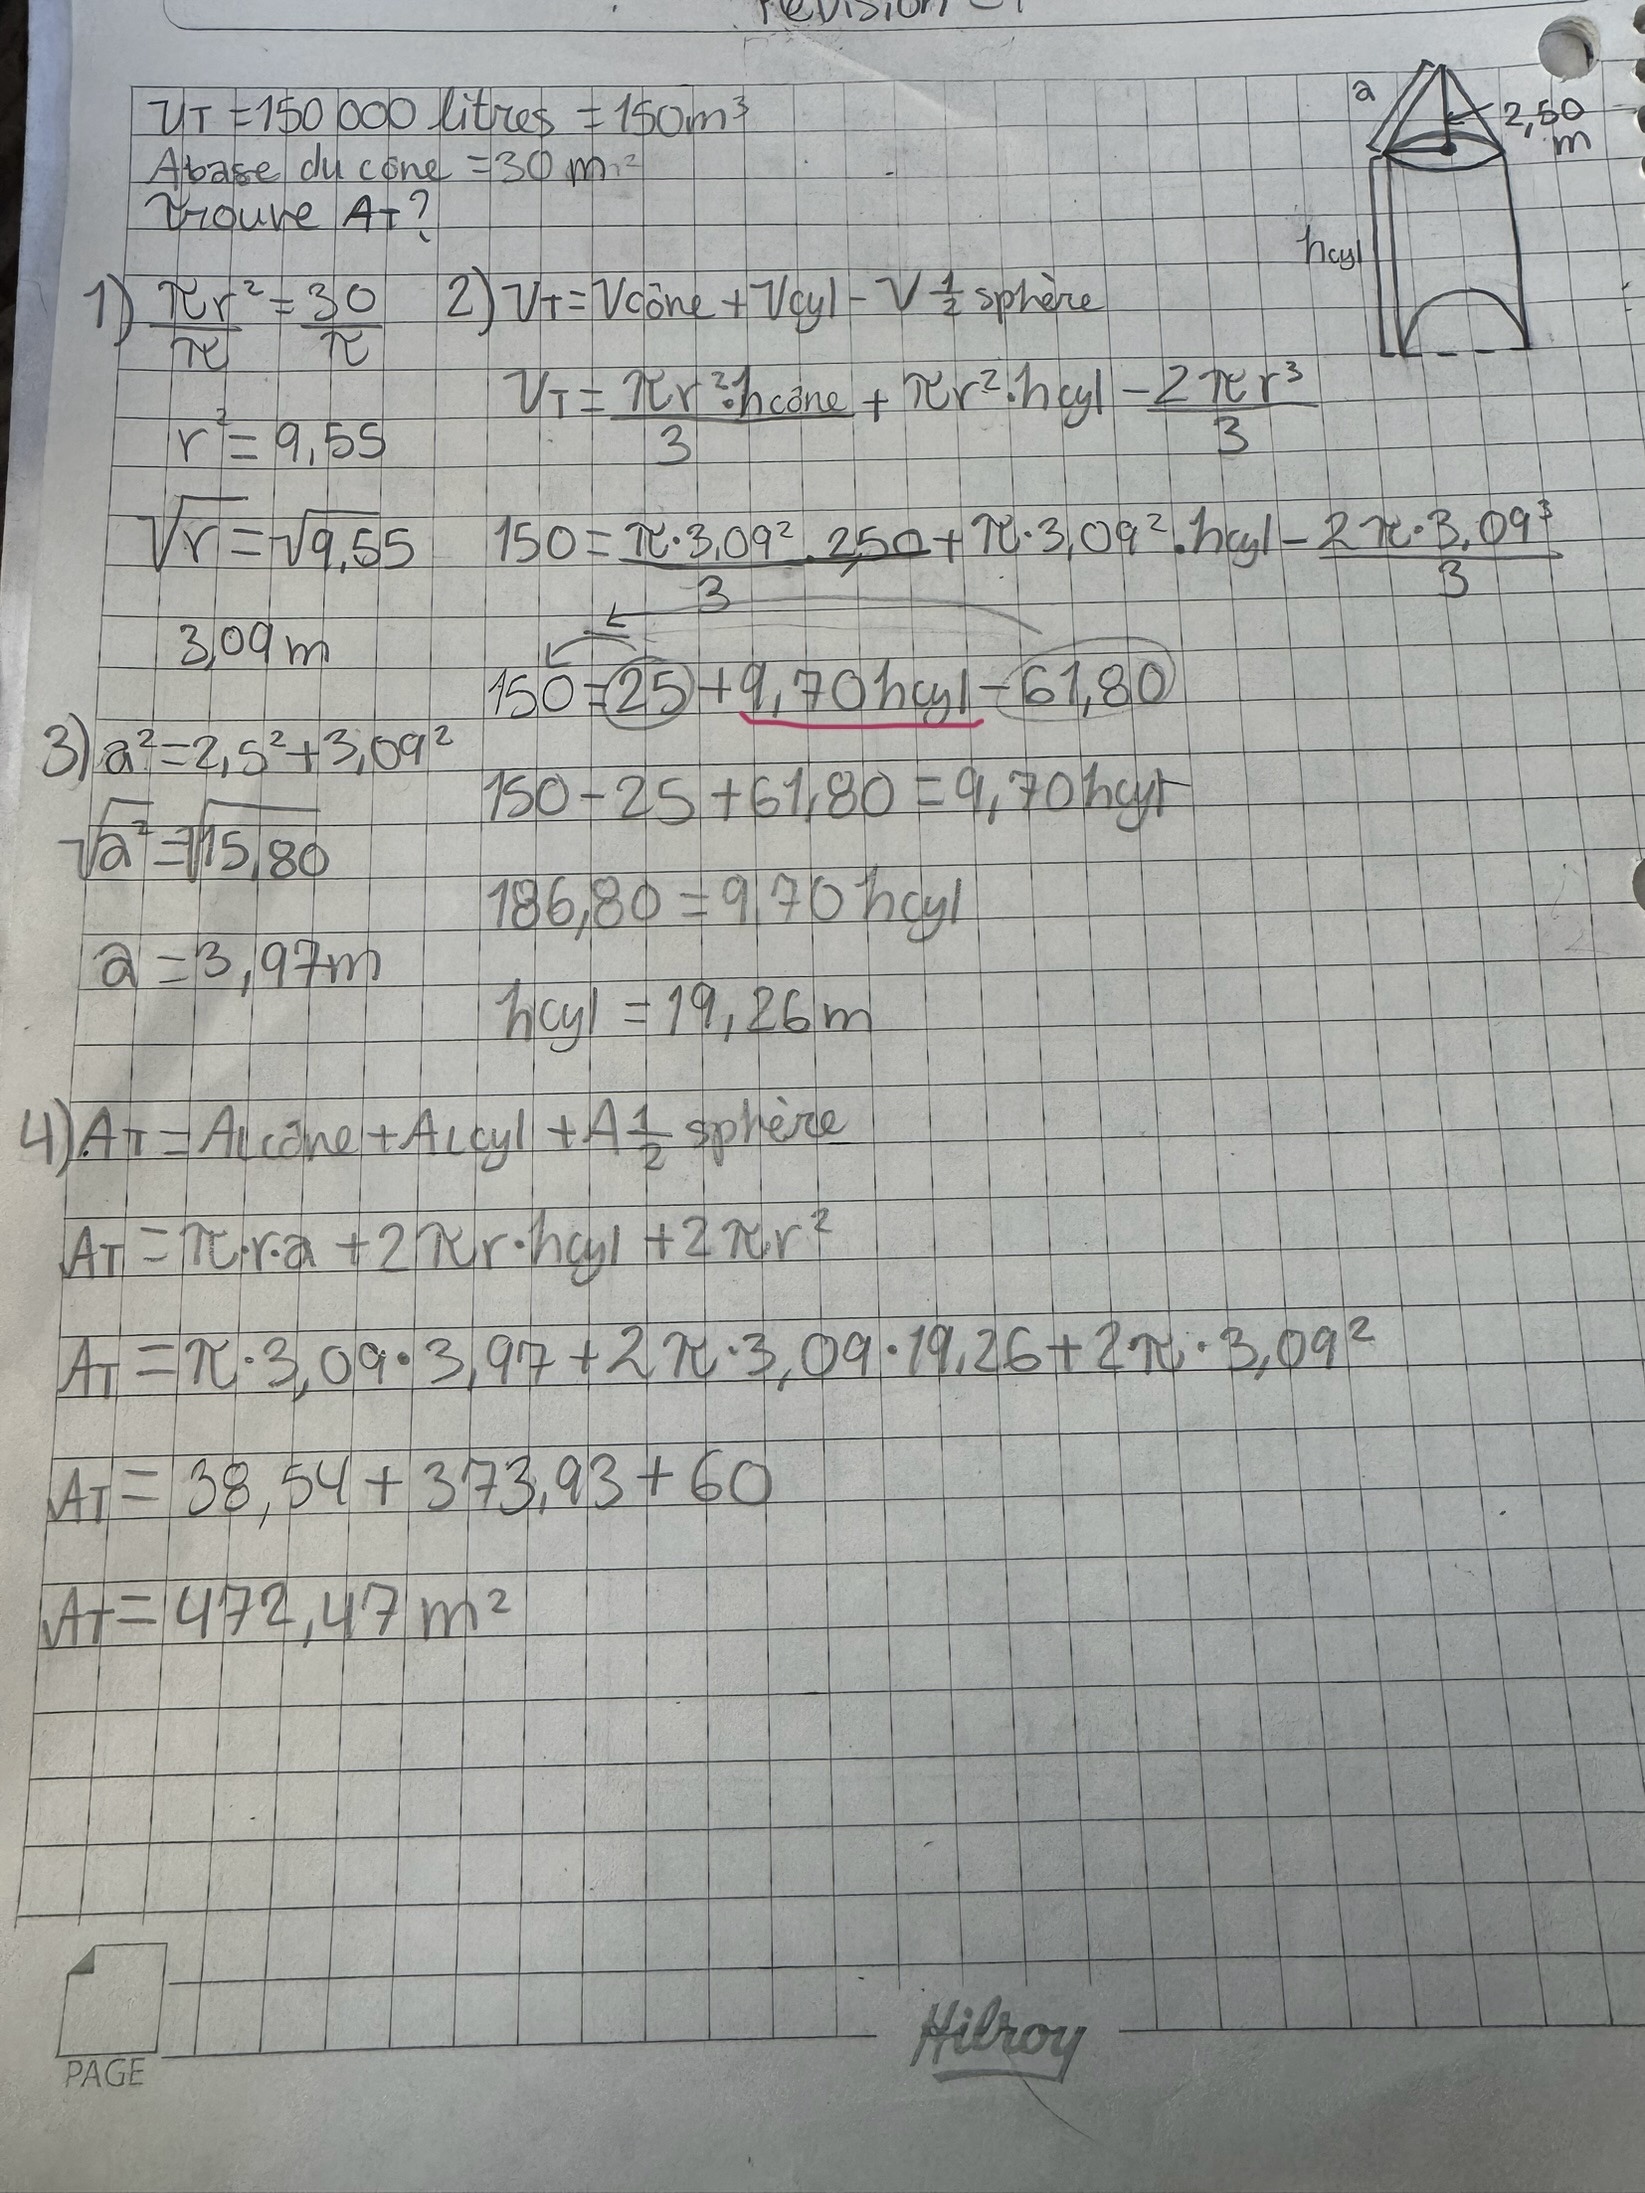 révision
VT = 150 000 litres = 150 m³
Abase du cône = 30 m²
Trouve AT?
a
2,50 m
hcyl
1) πr²/π = 30/π
r² = 9,55
√r = √9,55
3,09 m
2) VT = Vcône + Vcyl - V 1/2 sphère
VT = πr²·hcône/3 + πr²·hcyl - 2πr³/3
150 = π·3,09²·2,50/3 + π·3,09²·hcyl - 2π·3,09³/3
150 = 25 + 9,70hcyl - 61,80
150 - 25 + 61,80 = 9,70hcyl
186,80 = 9,70 hcyl
hcyl = 19,26 m
3) a² = 2,5² + 3,09²
√a² = √15,80
a = 3,97 m
4) AT = ALcône + ALcyl + A 1/2 sphère
AT = π·r·a + 2πr·hcyl + 2πr²
AT = π·3,09·3,97 + 2π·3,09·19,26 + 2π·3,09²
AT = 38,54 + 373,93 + 60
AT = 472,47 m²
PAGE
Hilroy